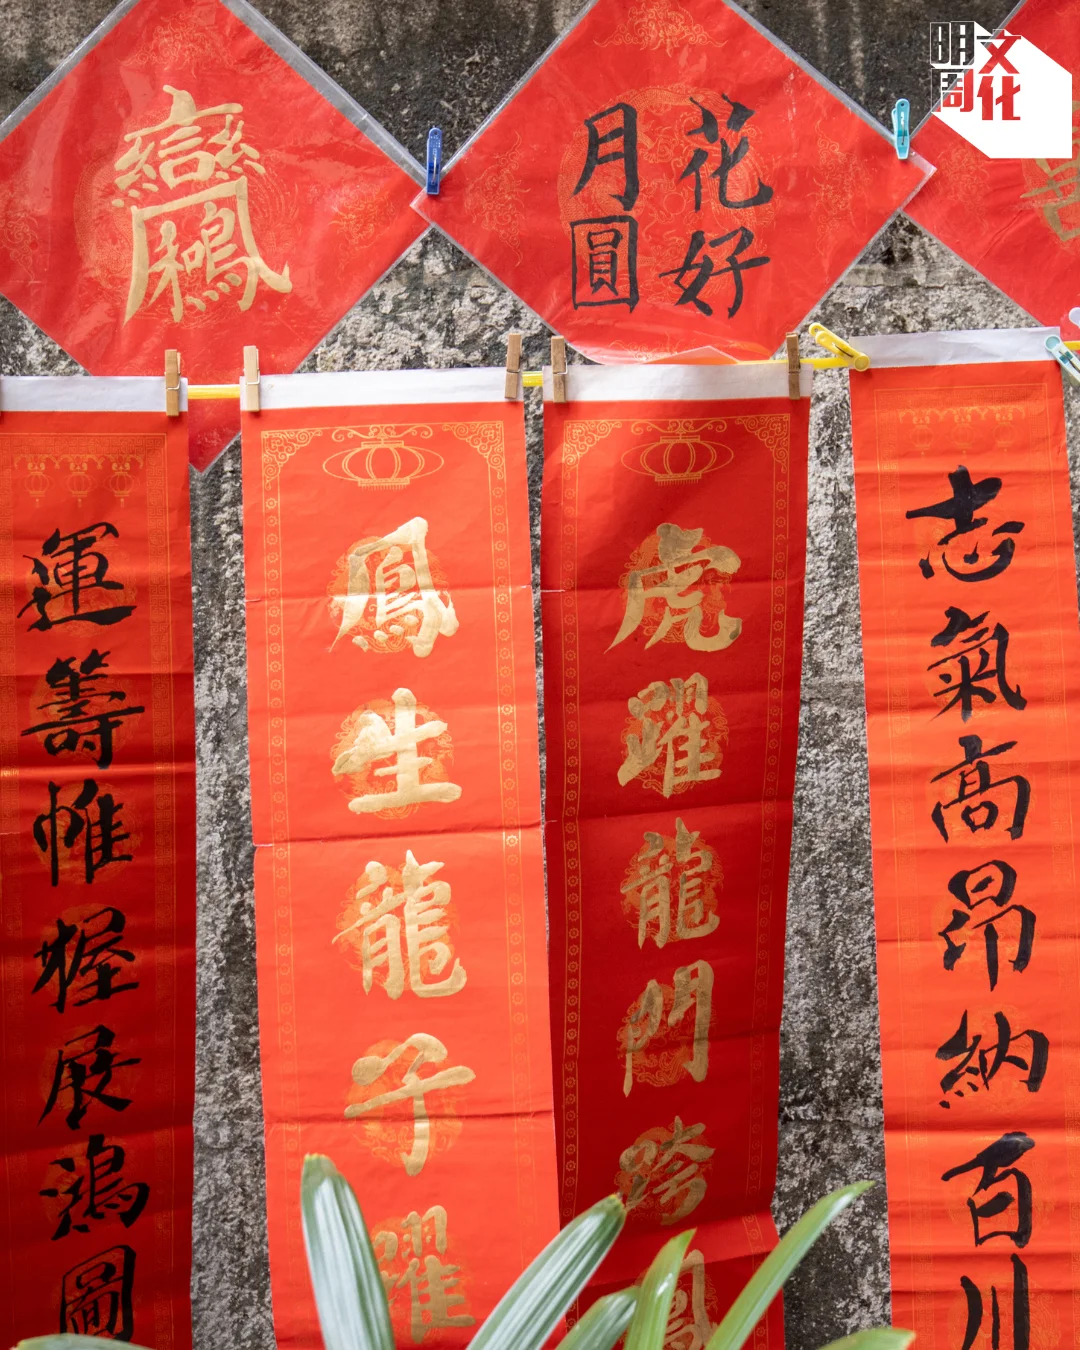 明周
文化
花好
月圓
志氣高昂納百川
虎躍龍門跨鳳
鳳生龍子
運籌帷握展鴻圖